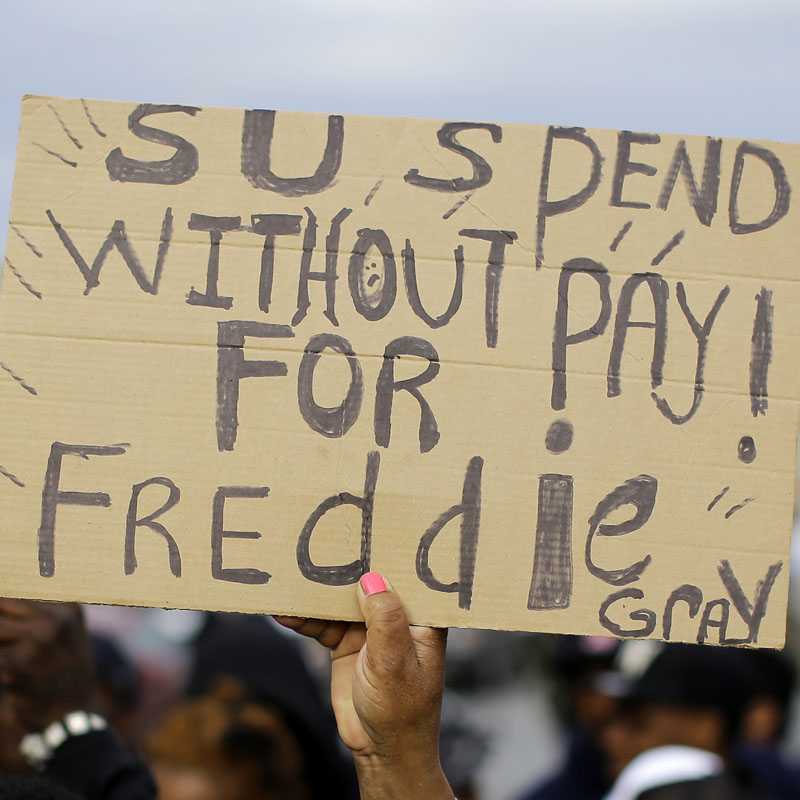 SUSPEND
WITHOUT PAY!
FOR
FREddie
GrAY